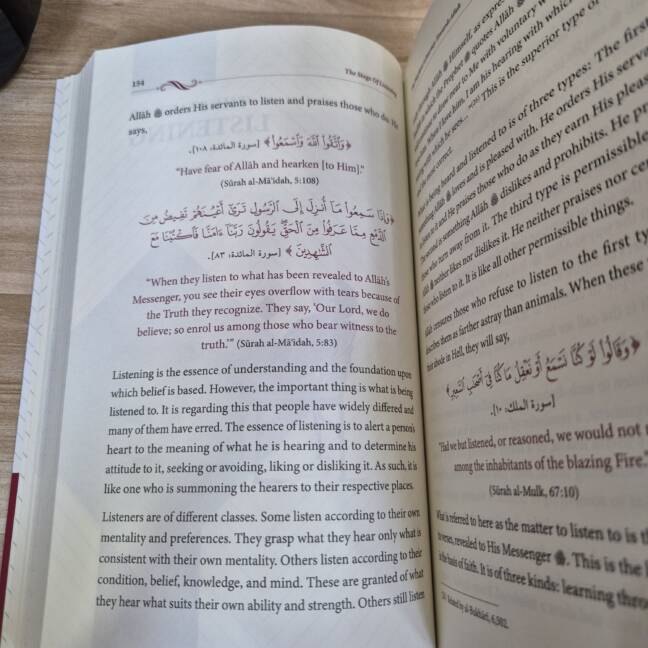 194
The Stage Of
Allāh ﷻ orders His servants to listen and praises those who do. He
says,
﴿وَاتَّقُوا اللَّهَ وَاسْمَعُوا﴾ [سورة المائدة، ١٠٨].
"Have fear of Allāh and hearken [to Him]."
(Sūrah al-Mā'idah, 5:108)
﴿وَإِذَا سَمِعُوا مَا أُنزِلَ إِلَى الرَّسُولِ تَرَىٰ أَعْيُنَهُمْ تَفِيضُ مِنَ
الدَّمْعِ مِمَّا عَرَفُوا مِنَ الْحَقِّ يَقُولُونَ رَبَّنَا ءَامَنَّا فَاكْتُبْنَا مَعَ
الشَّٰهِدِينَ﴾ [سورة المائدة، ٨٣].
"When they listen to what has been revealed to Allāh's
Messenger, you see their eyes overflow with tears because of
the Truth they recognize. They say, 'Our Lord, we do
believe; so enrol us among those who bear witness to the
truth.'" (Sūrah al-Mā'idah, 5:83)
Listening is the essence of understanding and the foundation upon
which belief is based. However, the important thing is what is being
listened to. It is regarding this that people have widely differed and
many of them have erred. The essence of listening is to alert a person's
heart to the meaning of what he is hearing and to determine his
attitude to it, seeking or avoiding, liking or disliking it. As such, it is
like one who is summoning the hearers to their respective places.
Listeners are of different classes. Some listen according to their own
mentality and preferences. They grasp what they hear only what is
consistent with their own mentality. Others listen according to their
condition, belief, knowledge, and mind. These are granted of what
they hear what suits their own ability and strength. Others still listen
Allāh ﷻ Himself, as
the Prophet ﷺ quotes Allāh ﷻ
draw near to Me with voluntary
When I love him, I am his hearing with which
with which he sees... This is the superior type of
being heard and listened to is of three types: The first
Allāh ﷻ loves and is pleased with. He orders His
to it and He praises those who do as they earn His
is something Allāh ﷻ dislikes and prohibits. He
who turn away from it. The third type is permissible
neither likes nor dislikes it. He neither praises nor
who listen to it. It is like all other permissible things.
Allāh censures those who refuse to listen to the first
describes them as farther astray than animals. When these
abode in Hell, they will say,
﴿وَقَالُوا لَوْ كُنَّا نَسْمَعُ أَوْ نَعْقِلُ مَا كُنَّا فِي أَصْحَٰبِ السَّعِيرِ﴾
[سورة الملك، ١٠].
"Had we but listened, or reasoned, we would not
among the inhabitants of the blazing Fire."
(Sūrah al-Mulk, 67:10)
What is referred to here as the matter to listen to is
revealed to His Messenger ﷺ. This is the
is the basis of faith. It is of three kinds: learning
by al-Bukhārī, 6,502.